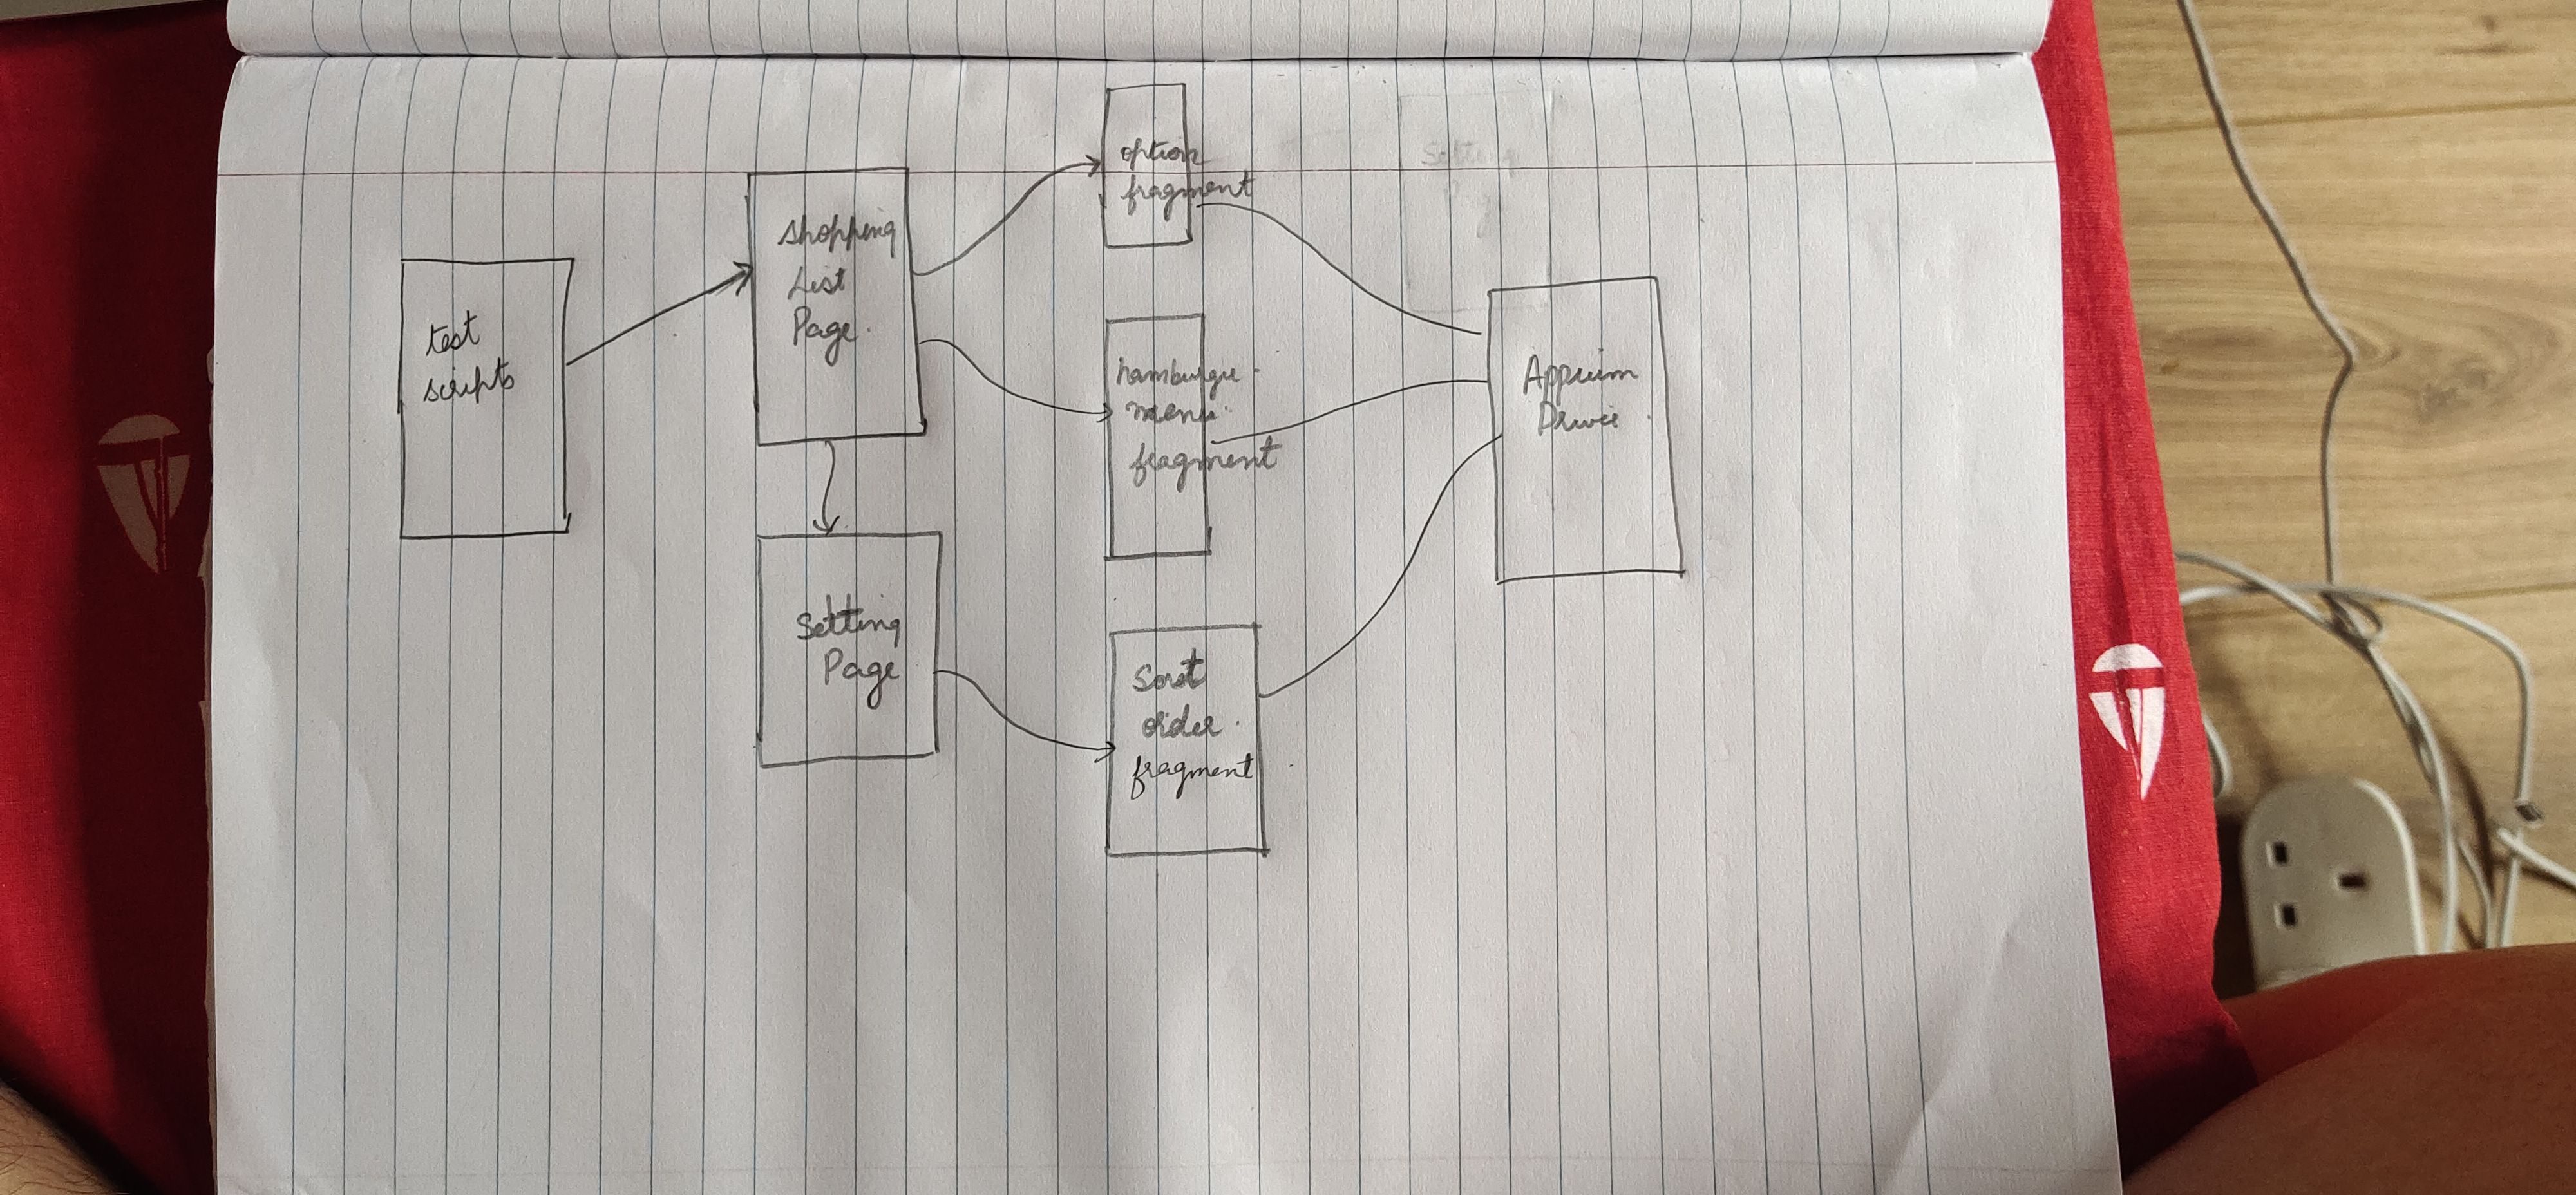 test
scripts
Shopping
List
Page.
Setting
Page
option
fragment
hamburger
menu
fragment
Sort
order.
fragment
Appium
Driver.